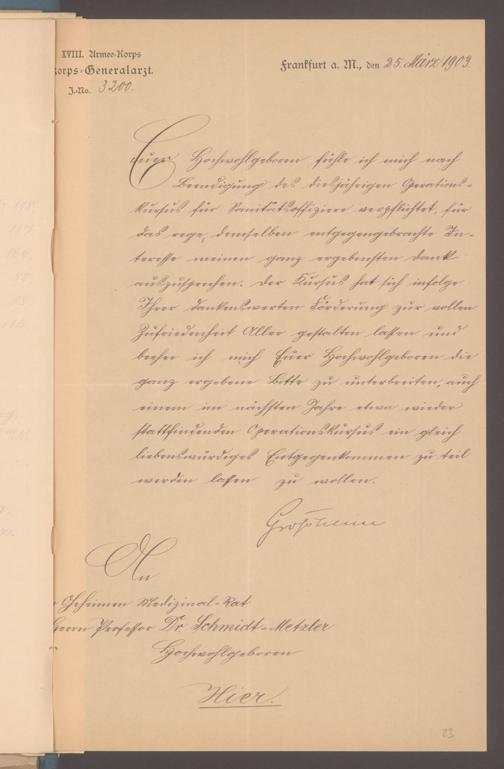 XVIII. Armee-Korps
Korps-Generalarzt.
J.-No. 3200.
Frankfurt a. M., den 25. März 1903.
Euer Hochwohlgeboren fühle ich mich nach
Beendigung des diesjährigen Operations-
kursus für Sanitätsoffiziere verpflichtet, für
das rege, demselben entgegengebrachte In-
teresse meinen ganz ergebensten Dank
auszusprechen. Der Kursus hat sich infolge
Ihrer dankenswerten Förderung zur vollen
Zufriedenheit Aller gestalten lassen und
beehre ich mich Euer Hochwohlgeboren die
ganz ergebene Bitte zu unterbreiten, auch
einem im nächsten Jahre etwa wieder
stattfindenden Operationskursus ein gleich
liebenswürdiges Entgegenkommen zu teil
werden lassen zu wollen.
Großheim
An
Geheimen Medizinal-Rat
Herrn Professor Dr. Schmidt-Metzler
Hochwohlgeboren
Hier.
23